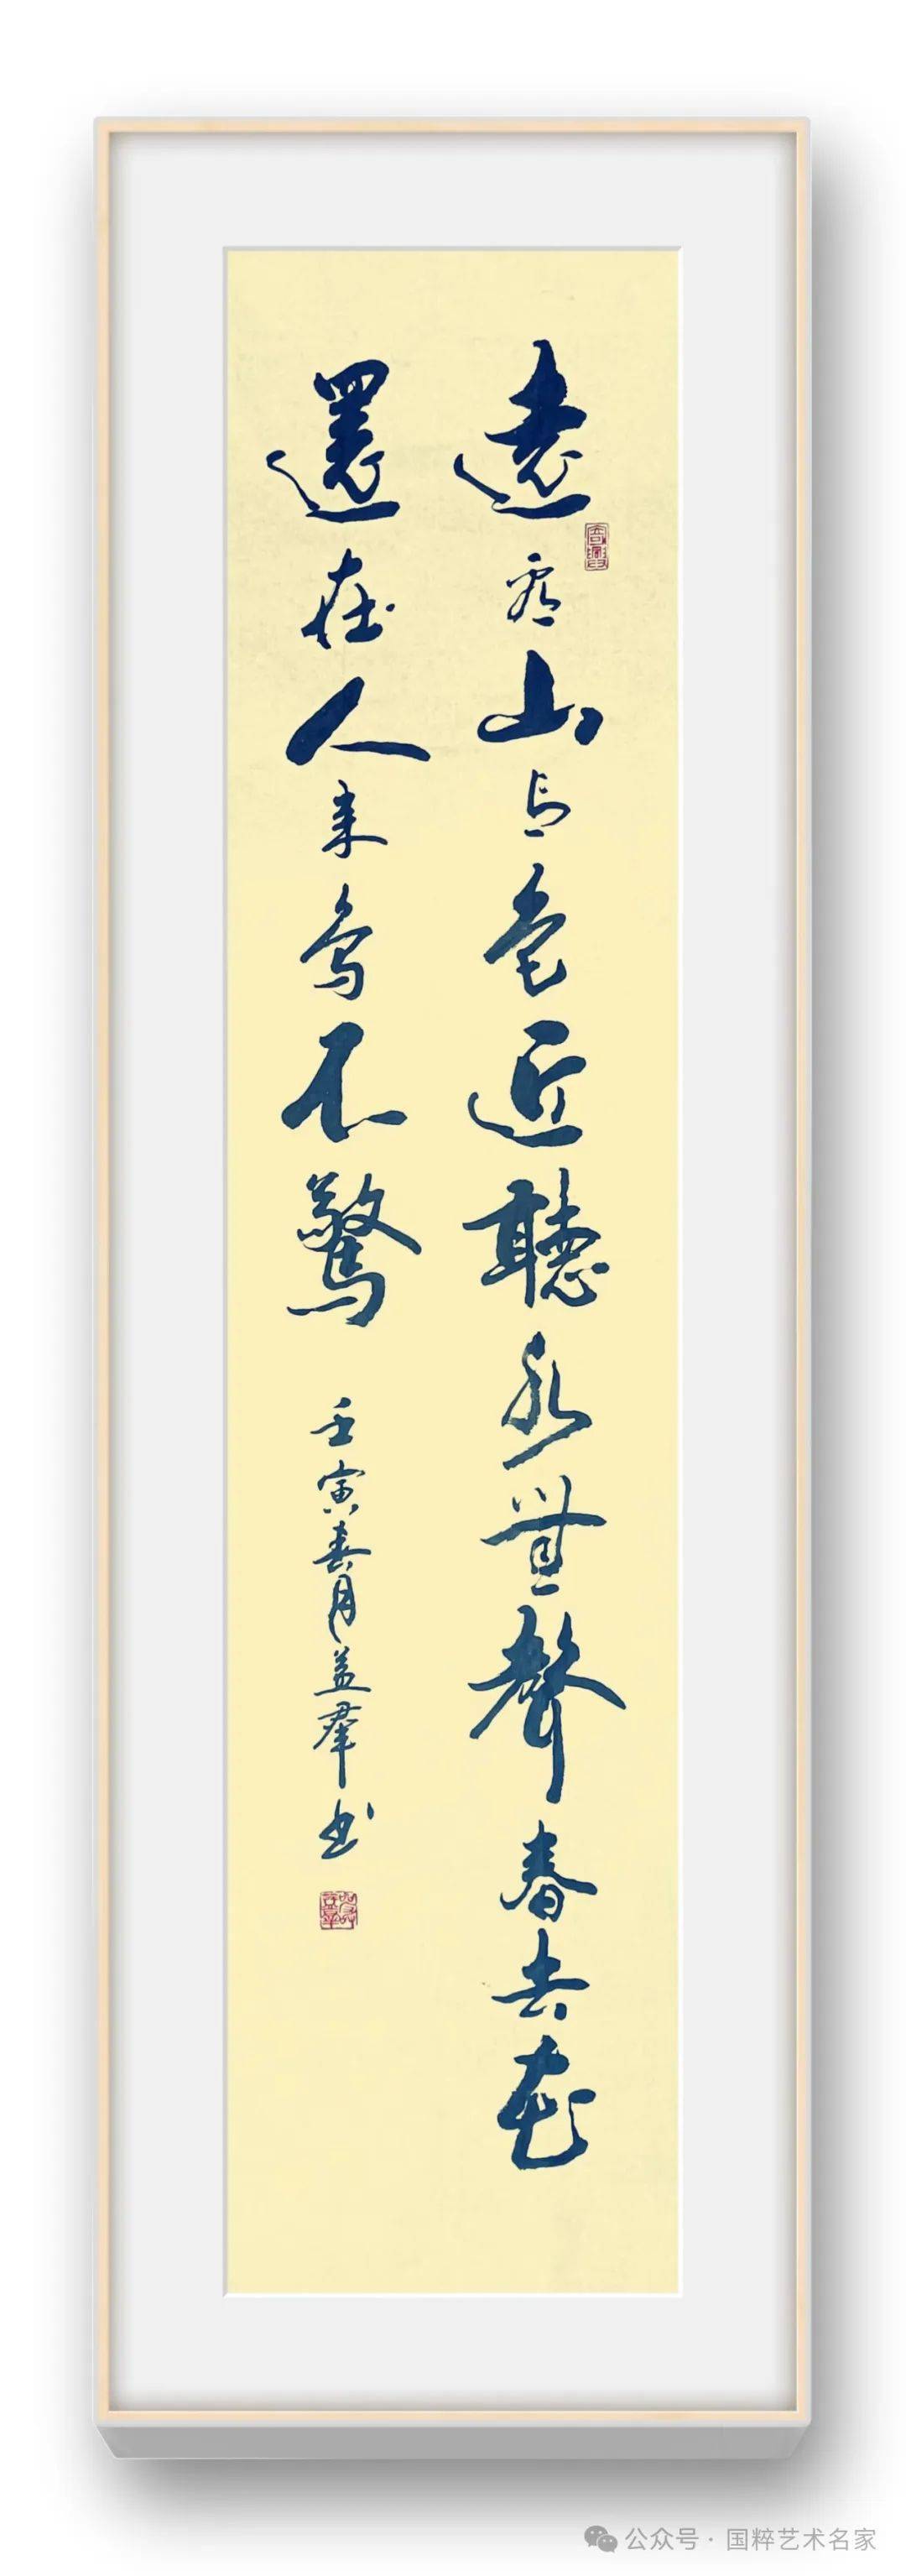 遠看山有色近聽水無聲春去花
還在人来鳥不驚
壬寅春月益羣书
公众号·国粹艺术名家